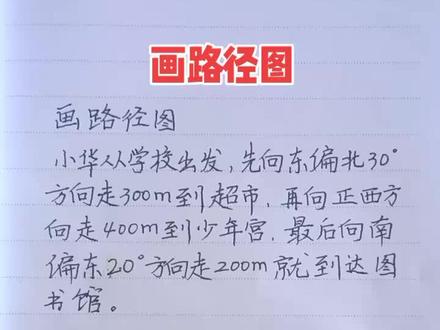 画路径图
画路径图
小华从学校出发,先向东偏北30°
方向走300m到超市,再向正西方
向走400m到少年宫,最后向南
偏东20°方向走200m就到达图
书馆。